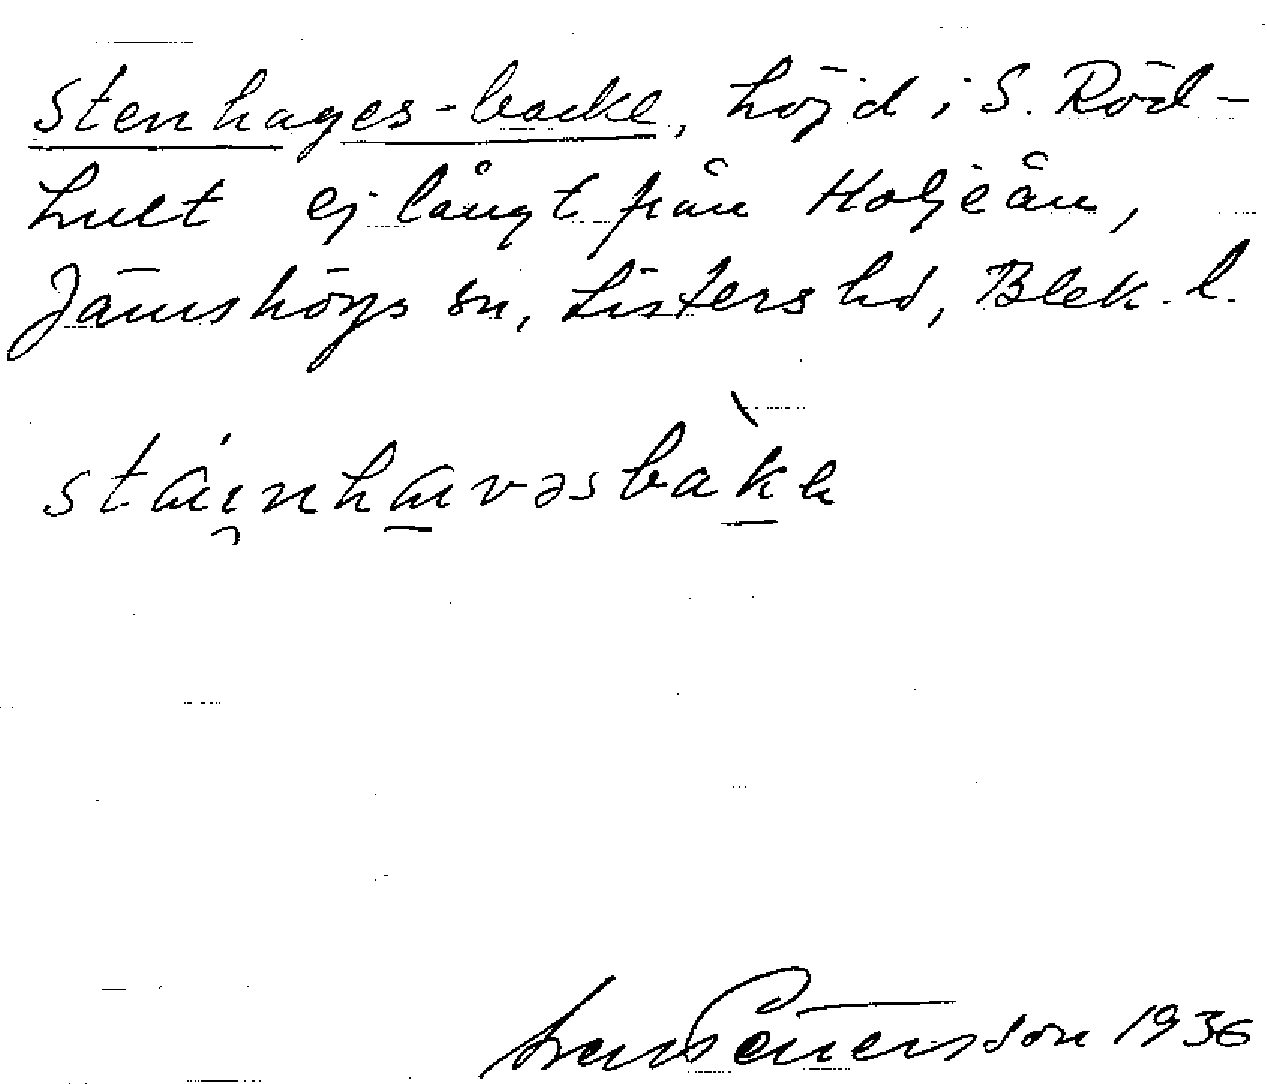 Stenhages-backe, höjd i S. Röd-
hult ej långt från Holjeån,
Jämshögs sn, Listers hd, Blek. l.
stáinhavəsbàka
Pettersson 1936